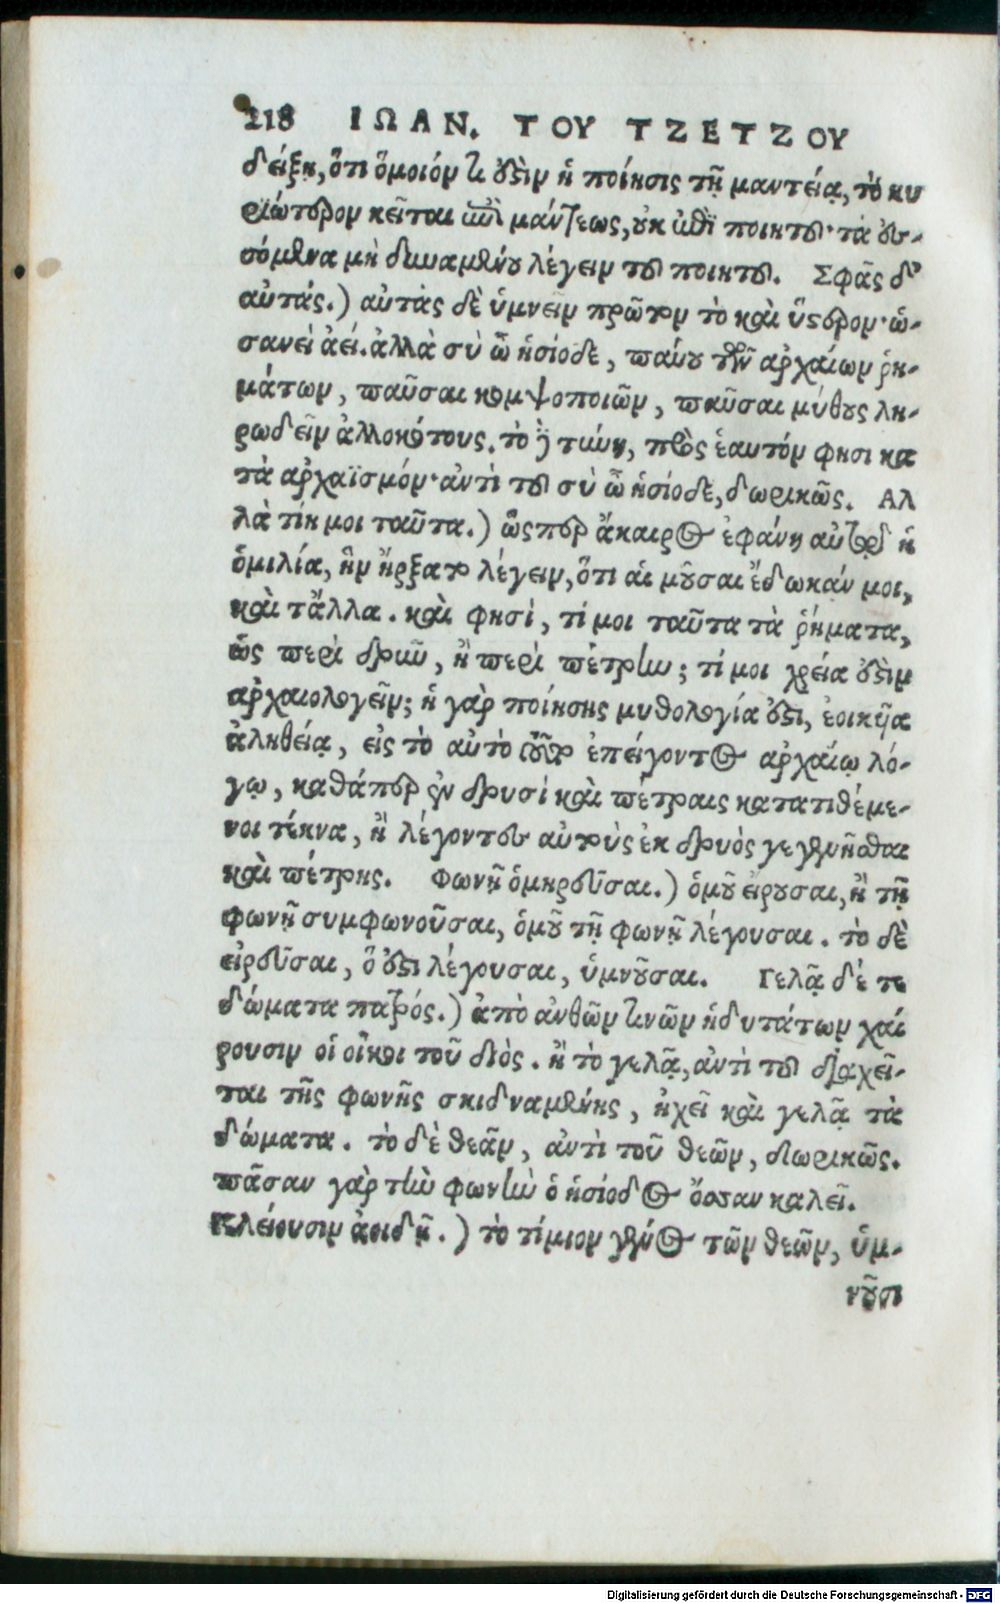 218 ΙΩΑΝ. ΤΟΥ ΤΖΕΤΖΟΥ
δείξῃ, ὅτι ὅμοιόν τι ἐστὶν ἡ ποίησις τῇ μαντείᾳ, τὸ κυ
ριώτερον κεῖται ἐπὶ μάντεως, οὐκ ἐπὶ ποιητοῦ· τὰ ἐσ-
σόμενα μὴ δυναμένου λέγειν τοῦ ποιητοῦ. Σφᾶς δ'
αὐτάς.) αὐτὰς δὲ ὑμνεῖν πρῶτον τὸ καὶ ὕστερον· ὡ-
σανεὶ ἀεί. ἀλλὰ σὺ ὦ ἡσίοδε, παύου τῶν ἀρχαίων ῥη-
μάτων, παῦσαι κομψοποιῶν, παῦσαι μύθους λη-
ρωδεῖν ἀλλοκότους. τὸ δὲ τύνη, πρὸς ἑαυτόν φησι κα
τὰ ἀρχαϊσμόν· ἀντὶ τοῦ σὺ ὦ ἡσίοδε, δωρικῶς. Αλ
λὰ τίη μοι ταῦτα.) ὥςπερ ἄκαιρος ἐφάνη αὐτῷ ἡ
ὁμιλία, ἣν ἤρξατο λέγειν, ὅτι αἱ μοῦσαι ἔδωκάν μοι,
καὶ τἄλλα. καὶ φησὶ, τί μοι ταῦτα τὰ ῥήματα,
ὡς περὶ δρῦν, ἢ περὶ πέτρην; τί μοι χρεία ἐστὶν
ἀρχαιολογεῖν; ἡ γὰρ ποίησης μυθολογία ἐστι, ἐοικῆα
ἀληθείᾳ, εἰς τὸ αὐτὸ τοῦτο ἐπείγοντος ἀρχαίῳ λό-
γῳ, καθάπερ ἐν δρυσὶ καὶ πέτραις κατατιθέμε-
νοι τέκνα, ἢ λέγοντες αὐτοὺς ἐκ δρυὸς γεγενῆσθαι
καὶ πέτρης. Φωνῇ ὁμηρεῦσαι.) ὁμοῦ εἴρουσαι, ἢ τῇ
φωνῇ συμφωνοῦσαι, ὁμοῦ τῇ φωνῇ λέγουσαι. τὸ δὲ
εἰρεῦσαι, ὅ ἐστι λέγουσαι, ὑμνοῦσαι. Γελᾷ δέ τε
δώματα πατρός.) ἀπὸ ἀνθῶν τινῶν ἡδυτάτων χαί
ρουσιν οἱ οἶκοι τοῦ διός. ἢ τὸ γελᾷ, ἀντὶ τοῦ διαχεῖ-
ται τῆς φωνῆς σκιδναμένης, ἠχεῖ καὶ γελᾷ τὰ
δώματα. τὸ δὲ θεᾶν, ἀντὶ τοῦ θεῶν, δωρικῶς.
πᾶσαν γὰρ τὴν φωνὴν ὁ ἡσίοδος ὄσσαν καλεῖ.
Κλείουσιν ἀοιδῇ.) τὸ τίμιον γένος τῶν θεῶν, ὑμ-
νοῦσι
Digitalisierung gefördert durch die Deutsche Forschungsgemeinschaft - DFG